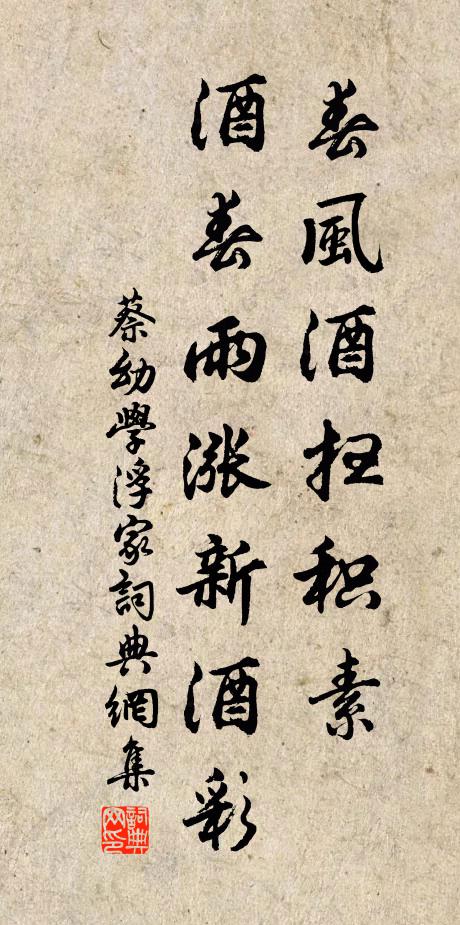 春風酒扫积素
酒春雨涨新酒彩
蔡幼學浮家詞典網集
詞典网印